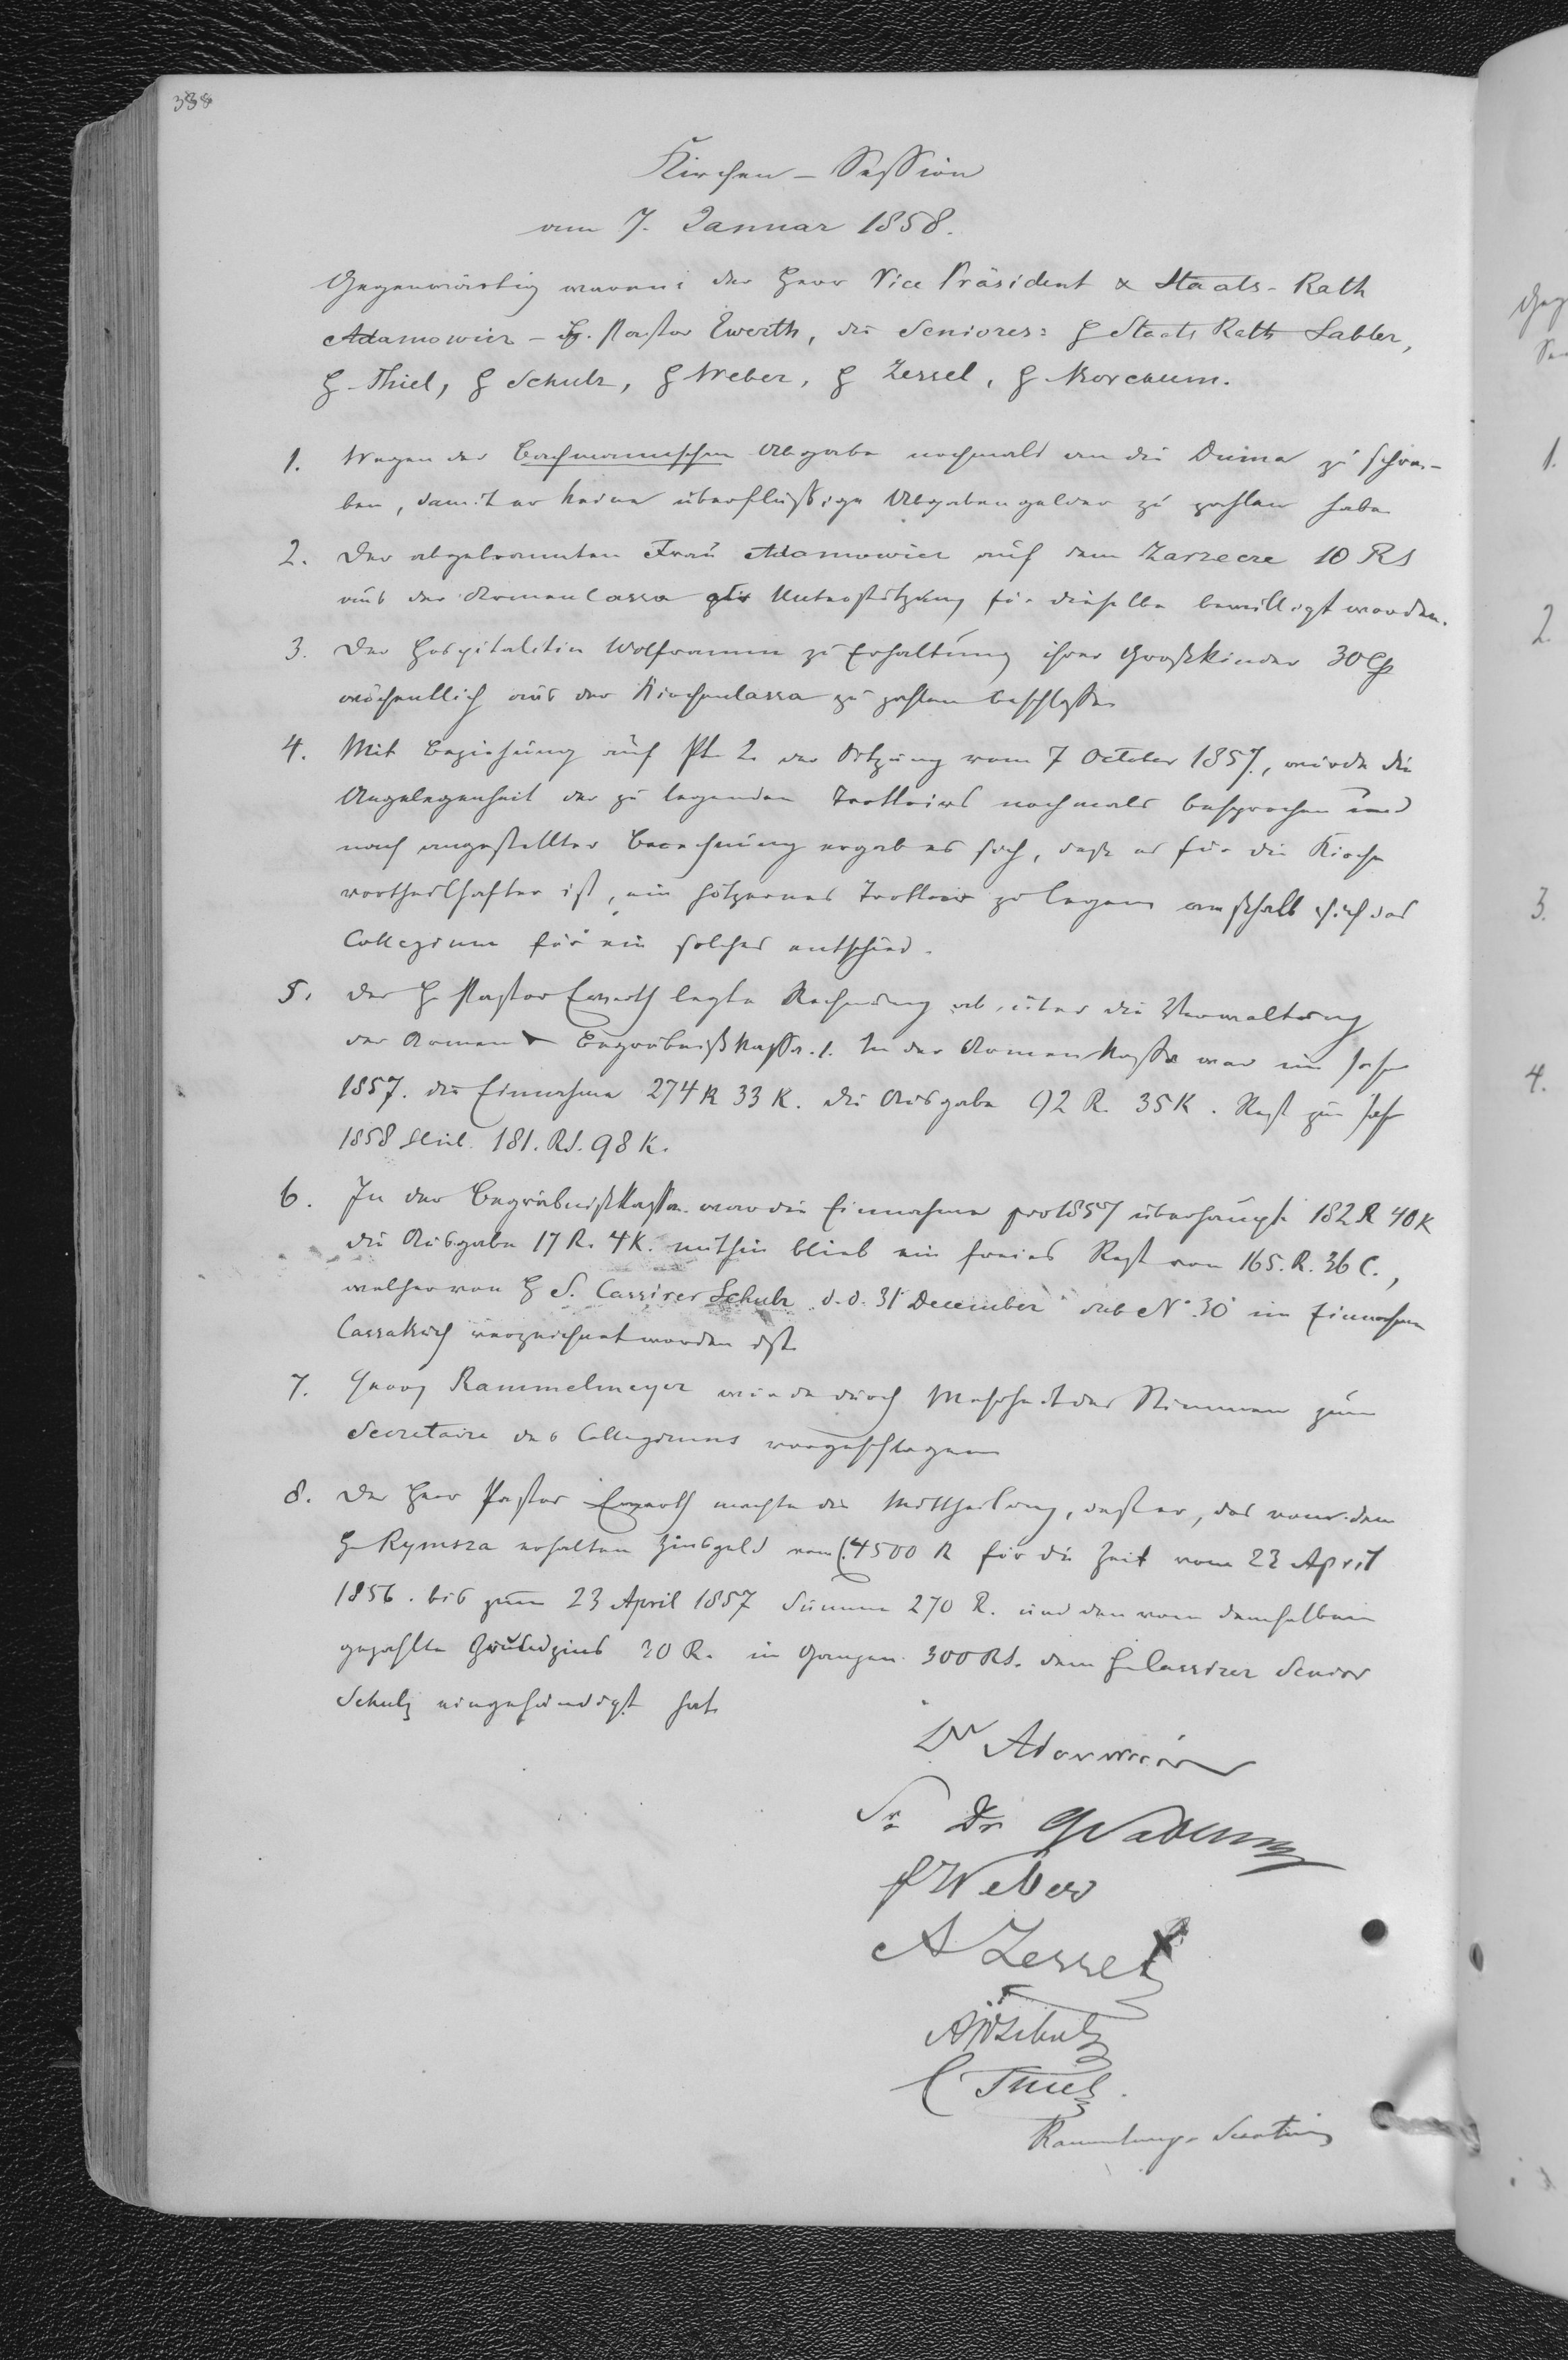 338
Kirchen-Session
am 7. Januar 1858.
Gegenwärtig waren: der Herr Vice Präsident & Staats-Rath
Adamowicz - H. Pastor Ewerth, die Seniores: H Staats Rath Sabler,
H. Thiel, H Schulz, H Weber, H Zessel, H
1. Wegen der Bachmannschen Abgabe nochmals an die Duma zu schrei-
ben, damit er keine überflüssige Abgabengelder zu zahlen habe
2. Der abgebrannten Frau Adamowicz auf dem Zarzecze 10 RS
aus der Armencassa als Unterstützung für dieselbe bewilligt worden.
3. Der Hospitalitin Wolframm zu Erhaltung ihrer Großkinder 30 Cp
wöchentlich aus der Kirchencassa zu zahlen beschlossen
4. Mit Beziehung auf Pt. 2. der Sitzung vom 7 October 1857, wurde die
Angelegenheit des zu legenden Trottoirs nochmals besprochen und
nach angestellter Berechnung ergab es sich, daß es für die Kirche
vortheilhafter ist, ein hölzernes Trottoir zu legen weshalb sich das
Collegium für ein solches entschied.
5. Der H. Pastor Ewerth legte Rechnung ab, über die Verwaltung
der Armen & Begräbnißkasse. 1. In der Armenkasse war im Jahre
1857. die Einnahme 274 R 33 K. die Ausgabe 92 R. 35 K. Rest zum Jahr
1858 181. RS. 98 K.
6. In der Begräbnißkasse war die Einnahme pro 1857 überhaupt 182 R 40 K
die Ausgabe 17 R. 4 K. mithin blieb ein freies Rest von 165. R. 36 C.,
welcher von H S. Cassirer Schulz d.d. 31 December sub No 30 im Einnahme
Cassabuch verzeichnet worden ist.
7. Georg Rammelmeyer wurde durch Mehrheit der Stimmen zum
Secretaire des Collegiums vorgeschlagen
8. Der Herr Pastor Ewerth machte die Mittheilung, daß er, das von dem
H. Rymsza erhalten Zinsgeld von 4500 R für die Zeit vom 23 April
1856. bis zum 23 April 1857 Summe 270 R. und den von demselben
gezahlte Grundzins 30 R. in Ganzen 300 RS. dem H. Cassirer Senior
Schulz eingehändigt hat.
Dr Adamowicz
Dr
Weber
A Zessel
A W Schulz
C Thiel.